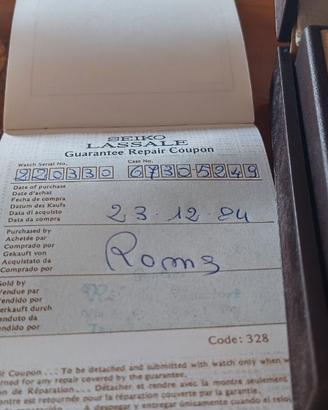 SEIKO
LASSALE
Guarantee Repair Coupon
Watch Serial No. Case No.
220330 67305249
Date of purchase
Date d'achat
Fecha de compra
Datum des Kaufs
Data di acquisto
Data da compra
23.12.84
Purchased by
Achetée par
Comprado por
Gekauft von
Acquistato da
Comprado por
Roms
Sold by
Vendue par
Vendido por
Verkauft durch
Venduto da
Vendido por
Code: 328
Coupon.... To be detached and submitted with watch only when
for any repair covered by the guarantee.
de Réparation... Détacher et rendre avec la montre seulement
est retournée pour la réparation couverte par la garantie.
A despegar y entregar únicamente cuando el reloj